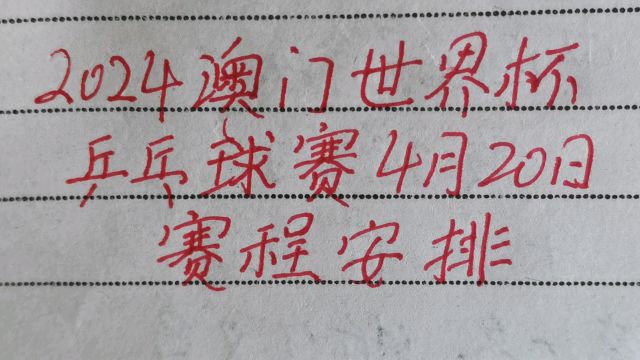 2024澳门世界杯
乒乓球赛4月20日
赛程安排